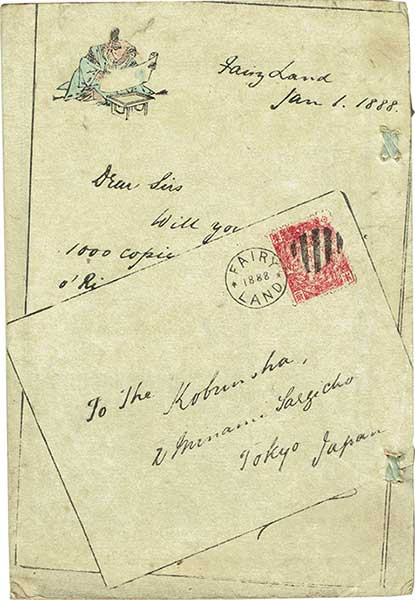 Fairy Land
Jan 1. 1888.
Dear Sirs
Will you
1000 copie
o' Ri
FAIRY
1888
LAND
To The Kobunsha,
2 Minami Saegicho
Tokyo Japan